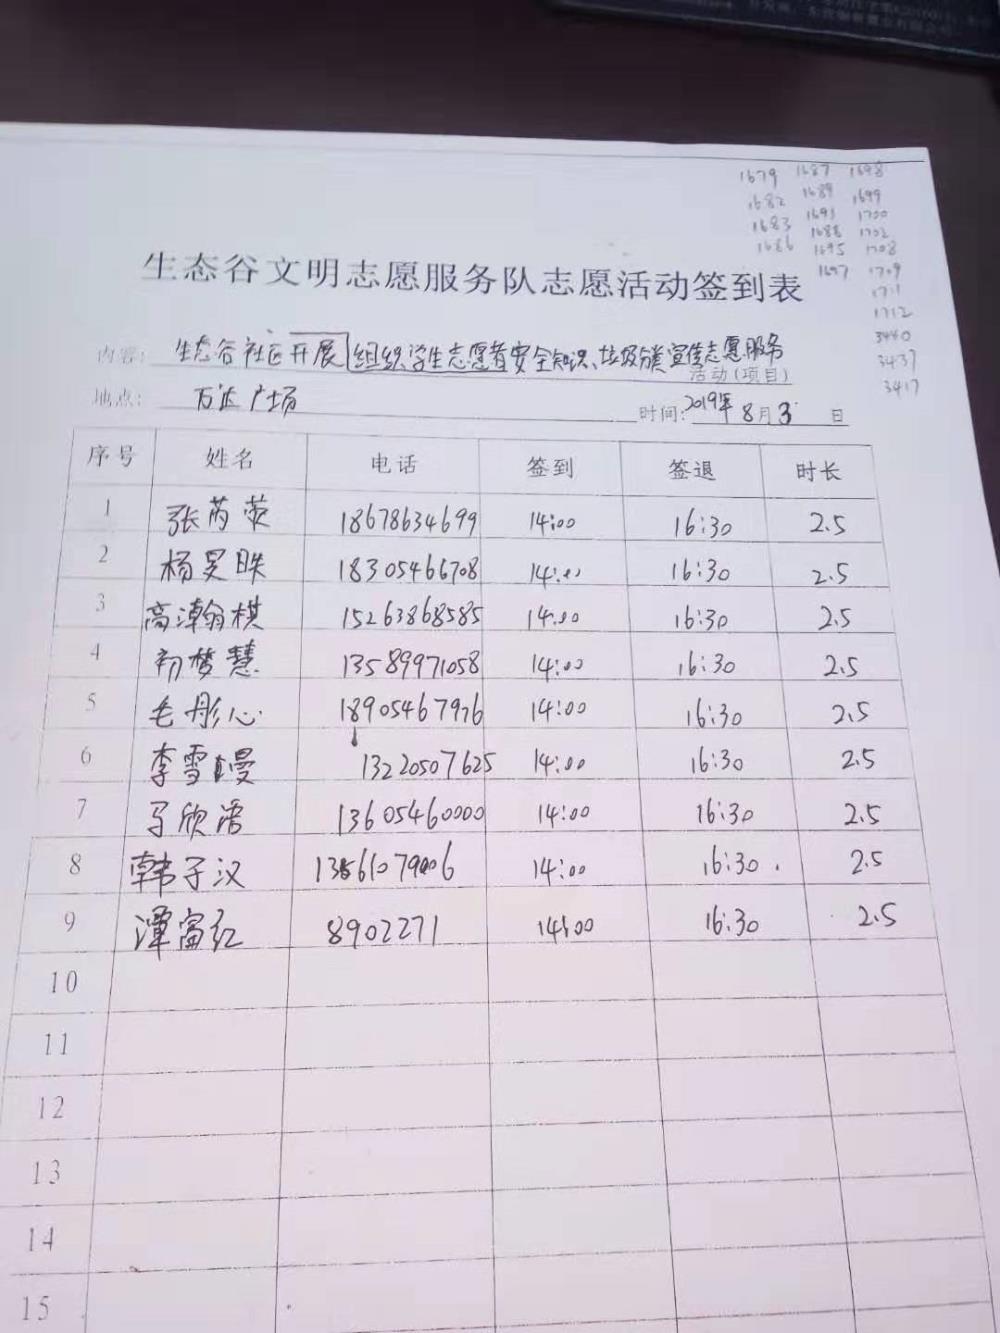 1679 1687 1698
1682 1689 1699
1683 1693 1700
1686 1688 1702
1695 1708
1697 1709
1711
1712
3440
3437
3417
生态谷文明志愿服务队志愿活动签到表
内容: 生态谷社区开展组织学生志愿者安全知识、垃圾分类宣传志愿服务
活动(项目)
地点: 万达广场 时间: 2019年8月3日
序号 姓名 电话 签到 签退 时长
1 张芮荧 18678634699 14:00 16:30 2.5
2 杨昊昳 18305466708 14:00 16:30 2.5
3 高瀚棋 15263868585 14:00 16:30 2.5
4 初梦慧 13589971058 14:00 16:30 2.5
5 毛彤心 18905467976 14:00 16:30 2.5
6 李雪 13220507625 14:00 16:30 2.5
7 马欣 13605460000 14:00 16:30 2.5
8 韩子汉 14:00 16:30 2.5
9 潭富红 8902271 14:00 16:30 2.5
10
11
12
13
14
15